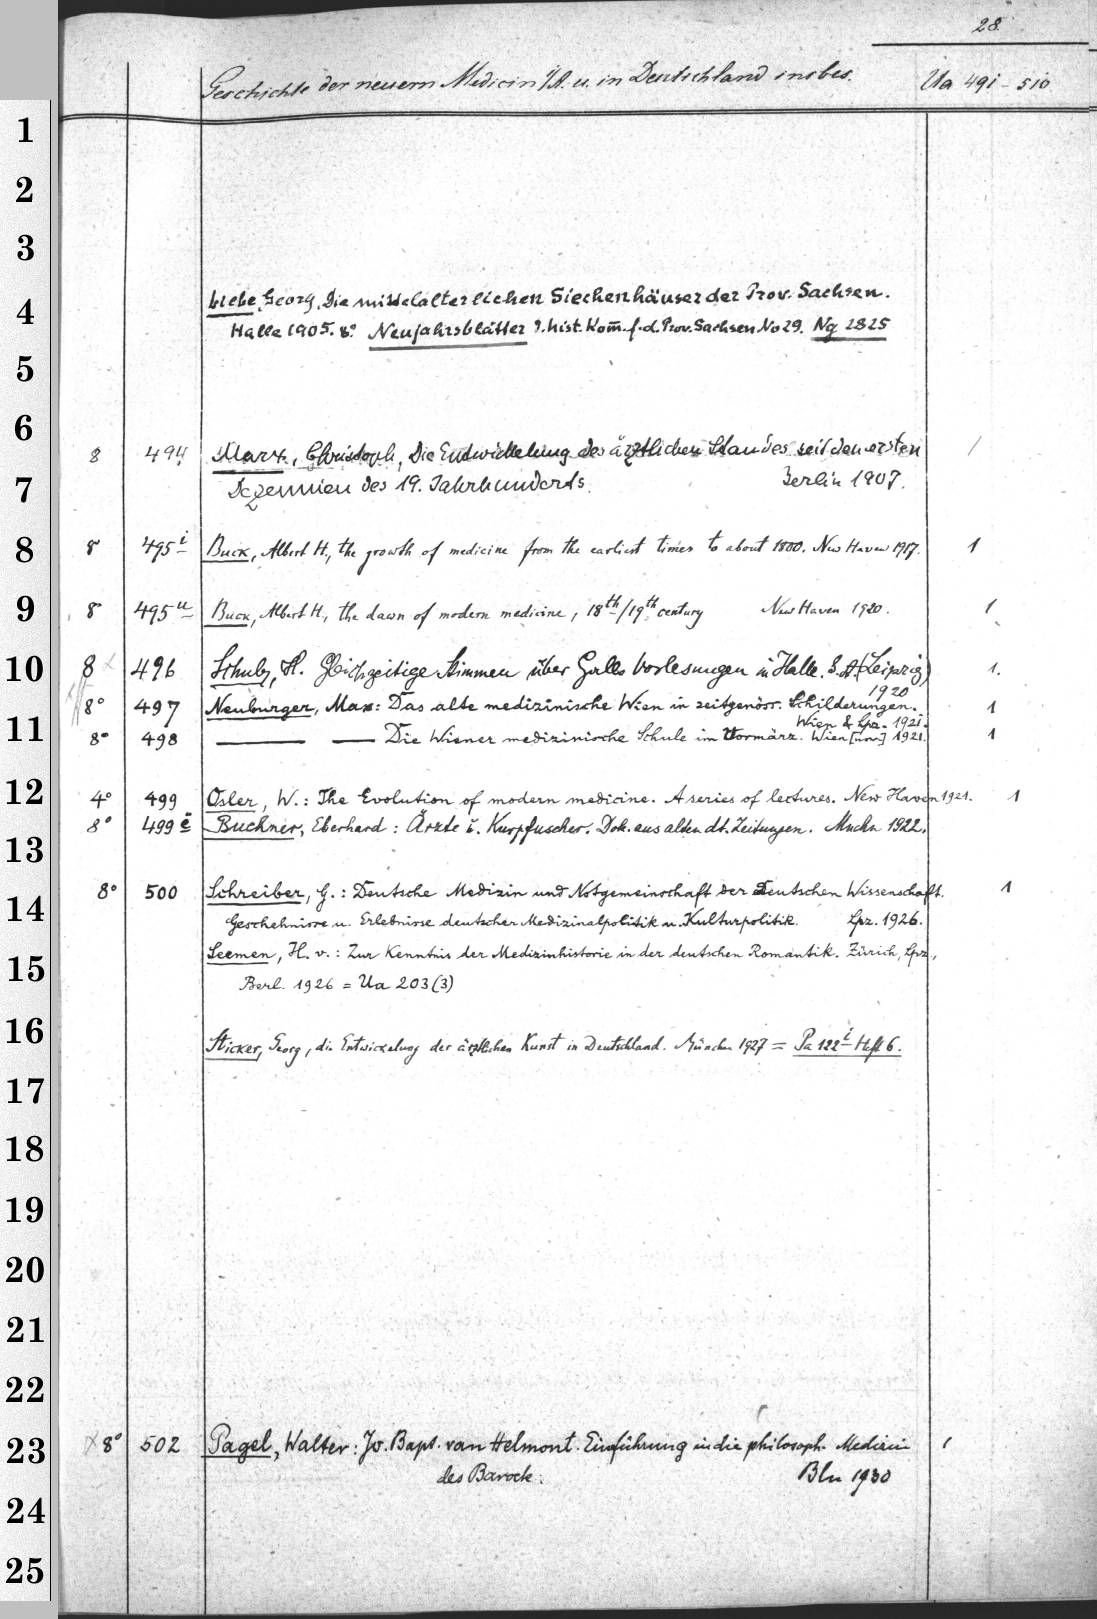 28
Geschichte der neuern Medicin i/A. u. in Deutschland insbes. Ua 491 - 510
1
2
3
Liebe, Georg, Die mittelalterlichen Siechenhäuser der Prov. Sachsen.
4
Halle 1905. 8° Neujahrsblätter d. hist. Kom̄. f. d. Prov. Sachsen No 29. Ng 2825
5
6
8 494 Marx, Christoph, Die Entwickelung des ärztlichen Standes seit den ersten /
7
Dezennien des 19. Jahrhunderts. Berlin 1907.
8
8° 495 i Buck, Albert H., the growth of medicine from the earliest times to about 1800. New Haven 1917. 1
9
8° 495 u Buck, Albert H., the dawn of modern medicine, 18th/19th century New Haven 1920. 1
10
8 496 Schulz, H. Gleichzeitige Stimmen über Galls Vorlesungen in Halle. S.A. (Leipzig) 1.
1920
8° 497 Neuburger, Max: Das alte medizinische Wien in zeitgenöss. Schilderungen. 1
Wien & Lpz. 1921.
11
8° 498 — — Die Wiener medizinische Schule im Vormärz. Wien [usw.] 1921. 1
12
4° 499 Osler, W.: The Evolution of modern medicine. A series of lectures. New Haven 1921. 1
8° 499 i Buchner, Eberhard: Ärzte u. Kurpfuscher. Dok. aus alten dt. Zeitungen. Mchn 1922.
13
8° 500 Schreiber, G.: Deutsche Medizin und Notgemeinschaft der Deutschen Wissenschaft. 1
14
Geschehnisse u. Erlebnisse deutscher Medizinalpolitik u. Kulturpolitik. Lpz. 1926.
Seemen, H. v.: Zur Kenntnis der Medizinhistorie in der deutschen Romantik. Zürich, Lpz.,
15
Berl. 1926 = Ua 203(3)
16
Sticker, Georg, die Entwickelung der ärztlichen Kunst in Deutschland. München 1927 = Pa 122 i Heft 6.
17
18
19
20
21
22
23
8° 502 Pagel, Walter: Jo. Bapt. van Helmont. Einführung in die philosoph. Medizin 1
des Barock. Bln 1930
24
25